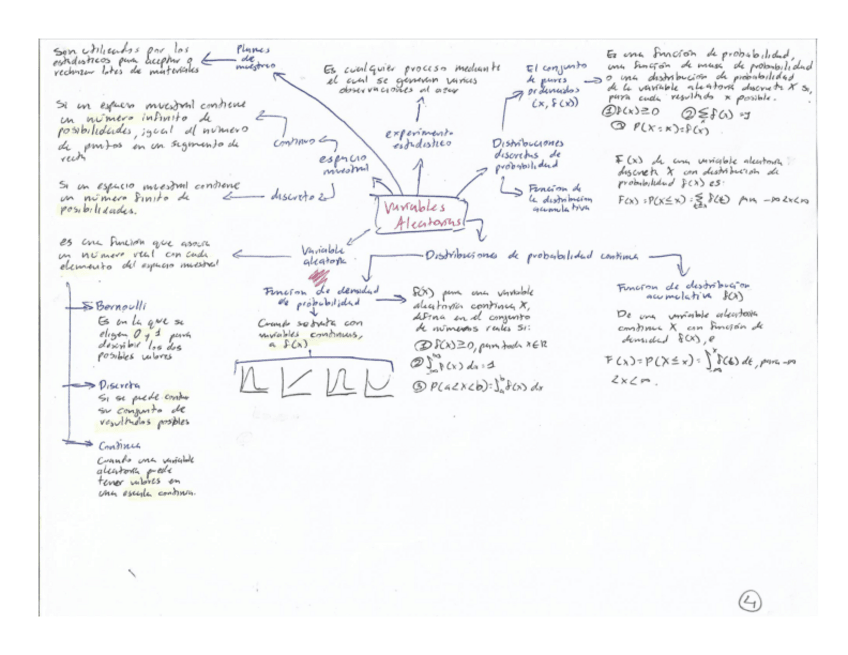 Son utilizados por los
estadisticos para aceptar o
rechazar lotes de materiales
Planes
de
muestreo
Es cualquier proceso mediante
el cual se generan varias
observaciones al azar
experimento
estadistico
El conjunto
de pares
ordenados
(x, f(x))
Es una función de probabilidad,
una función de masa de probabilidad
o una distribución de probabilidad
de la variable aleatoria discreta X si,
para cada resultado x posible.
① f(x) ≥ 0 ② Σ f(x) = 1
③ P(X = x) = f(x)
Si un espacio muestral contiene
un número infinito de
posibilidades, igual al número
de puntos en un segmento de
recta
continuo
espacio
muestral
Si un espacio muestral contiene
un número finito de
posibilidades.
discreto
Distribuciones
discretas de
probabilidad
Funcion de
la distribucion
acumulativa
F(x) de una variable aleatoria
discreta X con distribución de
probabilidad f(x) es:
F(x) = P(X ≤ x) = Σ f(t) para -∞<x<∞
Variables
Aleatorias
es una función que asocia
un número real con cada
elemento del espacio muestral
Variable
aleatoria
Distribuciones de probabilidad continua
Bernoulli
Es en la que se
eligen 0 y 1 para
describir los dos
posibles valores
Discreta
Si se puede contar
su conjunto de
resultados posibles
Continua
Cuando una variable
aleatoria puede
tener valores en
una escala continua.
Funcion de densidad
de probabilidad
Cuando se trata con
variables continuas,
a f(x)
f(x) para una variable
aleatoria continua X,
define en el conjunto
de números reales si:
① f(x) ≥ 0, para toda x∈R
② ∫ f(x) dx = 1
③ P(a<X<b) = ∫ f(x) dx
Funcion de distribución
acumulativa f(x)
De una variable aleatoria
continua X con función de
densidad f(x), e
F(x) = P(X ≤ x) = ∫ f(t) dt, para -∞
<x<∞.
4